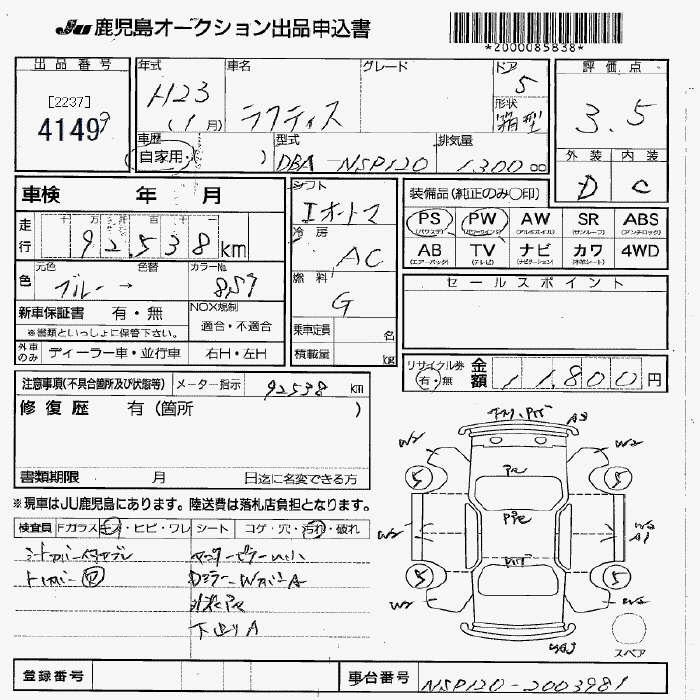 JU 鹿児島オークション出品申込書
*2000085838*
出品番号
[2237]
4149
年式
H23
(1月)
車名
ラクティス
グレード
ドア
5
形状
箱型
評価点
3.5
車歴
自家用・( )
型式
DBA-NSP120
排気量
1,300 00
外装 内装
D C
車検 年 月
走行
十 万 千 百 十 一
92,538 km
色
元色 色替 カラーNo.
ブルー → 859
新車保証書 有・無
※書類といっしょに保管下さい。
NOX規制
適合・不適合
外車のみ ディーラー車・並行車 右H・左H
シフト
Iオートマ
冷房
AC
燃料
G
乗車定員 名
積載量 kg
装備品(純正のみ○印)
PS PW AW SR ABS
(パワステ) (パワーウインド) (アルミホイル) (サンルーフ) (アンチロック)
AB TV ナビ カワ 4WD
(エアーバック) (テレビ) (ナビゲーション) (本革シート)
セールスポイント
リサイクル券
有・無
金額 11,800円
注意事項(不具合箇所及び状態等) メーター指示 92538 km
修復歴 有(箇所 )
書類期限 月 日迄に名変できる方
※現車はJU鹿児島にあります。陸送費は落札店負担となります。
検査員 Fガラス キズ・ヒビ・ワレ シート コゲ・穴・汚れ・破れ
下廻りA
W2 A3 W2
5 5
W2
5 5
W2
スペア
登録番号
車台番号 NSP120-2003981